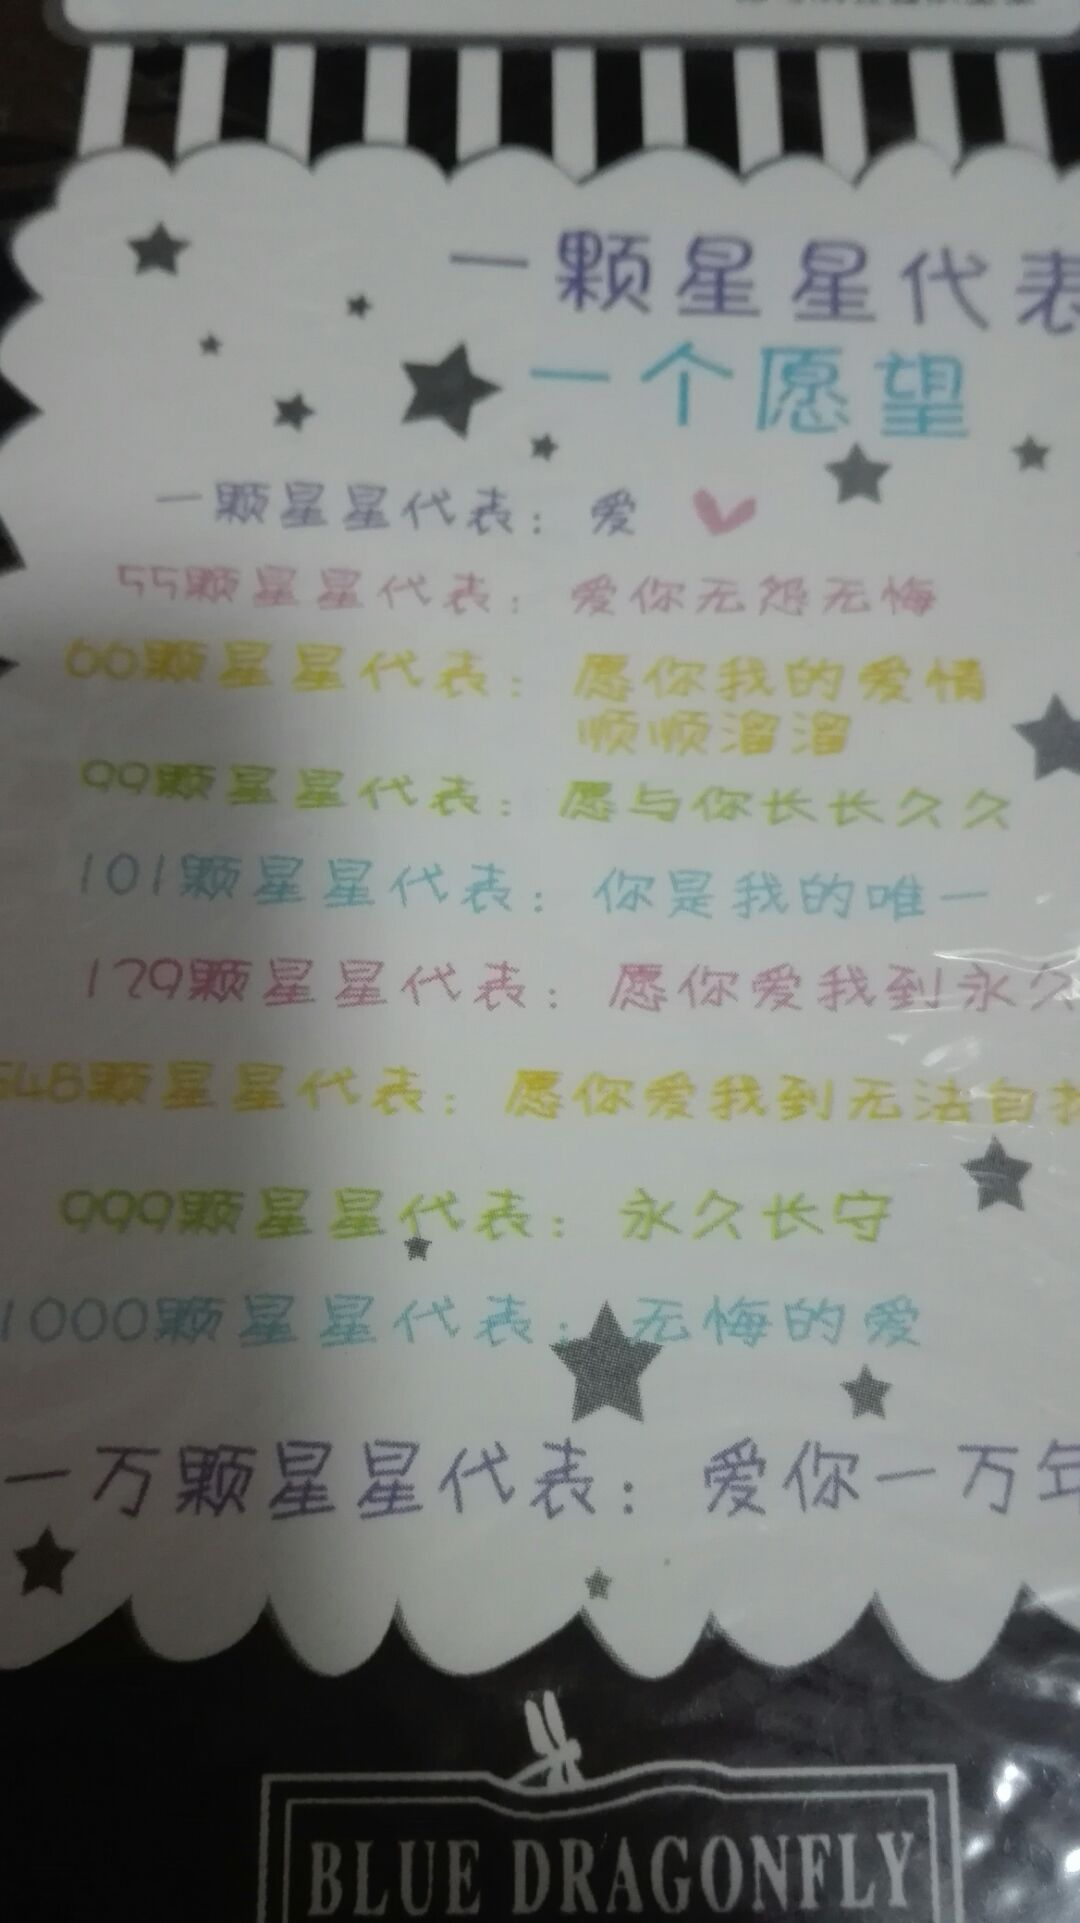 一颗星星代表
一个愿望
一颗星星代表：爱
55颗星星代表：爱你无怨无悔
66颗星星代表：愿你我的爱情
顺顺溜溜
99颗星星代表：愿与你长长久久
101颗星星代表：你是我的唯一
129颗星星代表：愿你爱我到永久
548颗星星代表：愿你爱我到无法自
999颗星星代表：永久长守
1000颗星星代表：无悔的爱
一万颗星星代表：爱你一万年
BLUE DRAGONFLY